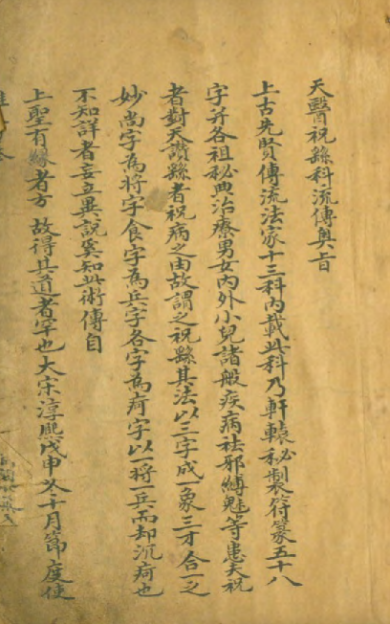 天醫祝繇科流傳奧旨
上古先賢傳流法家十三科內載此科乃軒轅秘製符篆五十八
字并各祖秘典治療男女內外小兒諸般疾病祛邪縛魅等患夫祝
者對天讚繇者祝病之由故謂之祝繇其法以三字成一象三才合一之
妙尚字為將字食字為兵字各字為疴字以一將一兵而却沉疴也
不知詳者妄立異說奚知此術傳自
上聖有緣者方 故得其道者罕也大宋淳熙戊申冬十月節度使